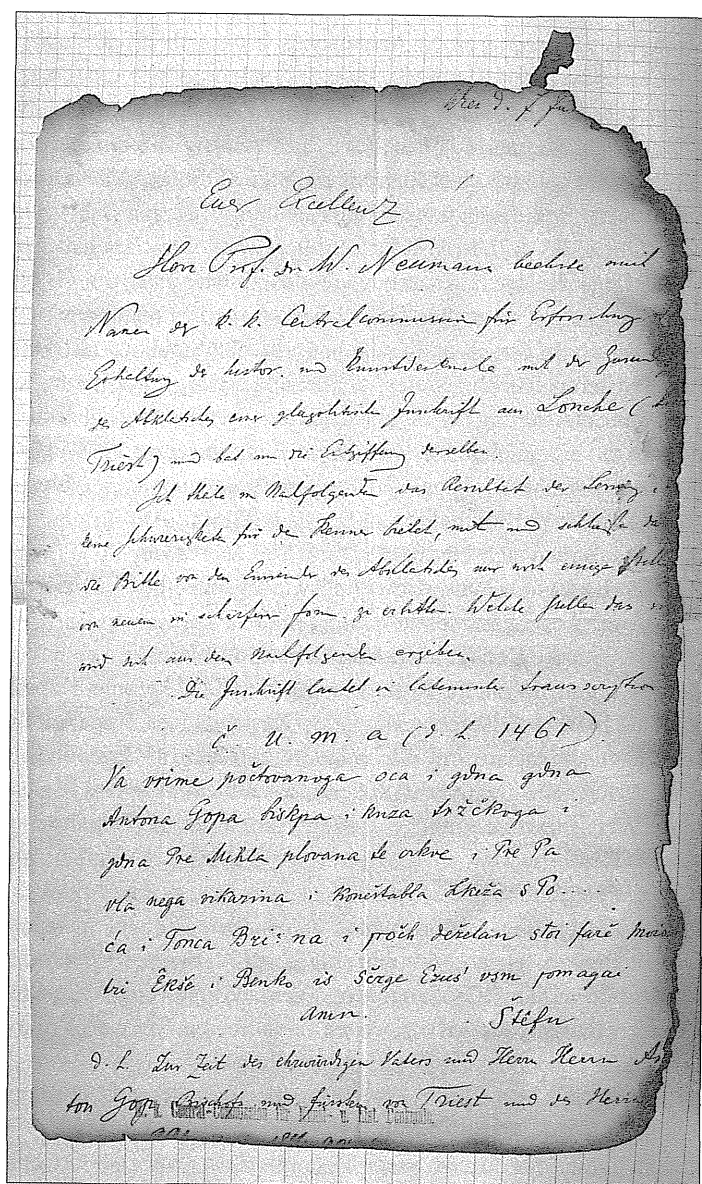 Euer Excellenz
Herr Prof. Dr W. Neumann beehrte mich
Namen der k. k. Centralcommission für Erforschung
Erhaltung der histor. und Kunstdenkmale mit der Zusendung
des Abklatsches einer glagolitischen Inschrift aus Lonche (
Triest) und bat um die Entziffrung derselben.
Ich theile im Nachfolgenden das Resultat der Lesung
keine Schwierigkeiten für den Kenner bietet, mit und schließe
die Bitte von dem Einsender des Abklatsches nur noch einige Stellen
von neuem in schärferer Form zu erbitten. Welche Stellen das
wird sich aus dem Nachfolgenden ergeben.
Die Inschrift lautet in lateinischer Transscription
č. u. m. a (d. h. 1461).
Va vrime počtovanoga oca i gdna gdna
Antona Gopa biskpa i knza tržčkoga i
gdna Pre Mihla plovana te crkve i Pre Pa
vla nega vikarina i koneštabla Lkeža s Po....
ća i Tonca Bri:na i proćh deželan stoi farê
tri Êkše i Benko is Sôrge Ezus' vsm pomagai
amn. Štêfn
d. h. Zur Zeit des ehrwürdigen Vaters und Herrn Herrn An
ton Gopa Bischofs und Fürsten von Triest und des Herrn